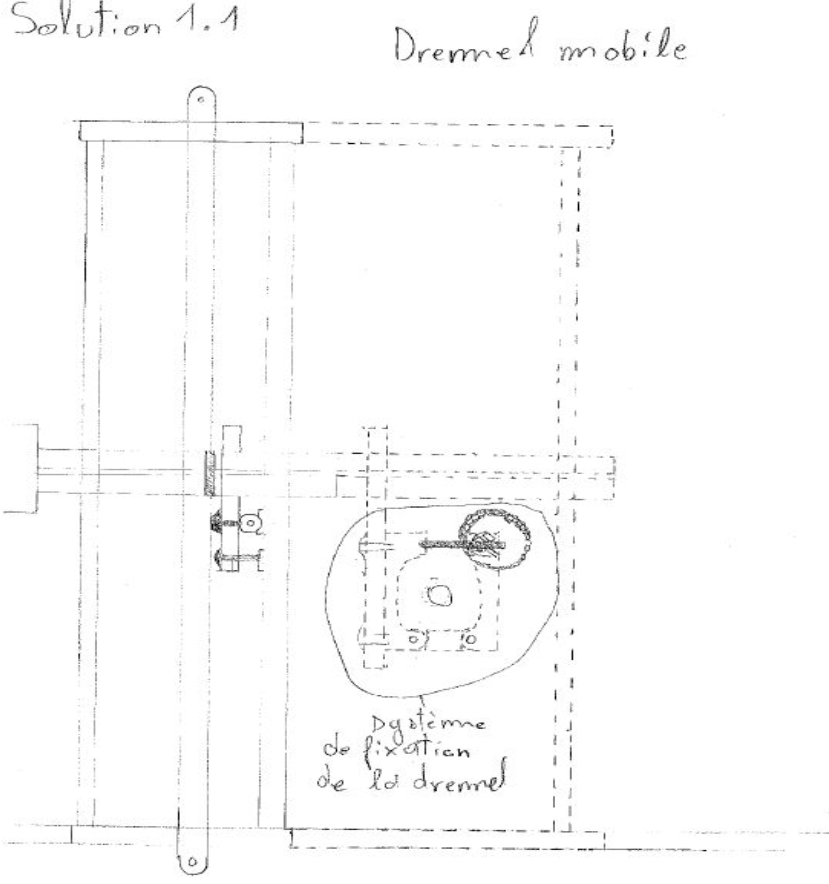 Solution 1.1
Dremel mobile
Système
de fixation
de la dremel